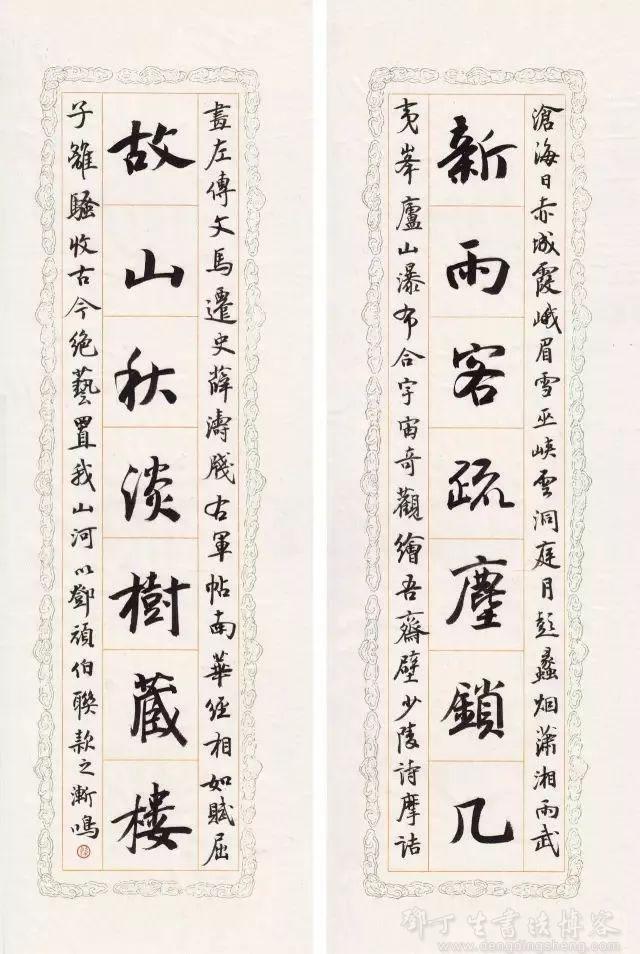 滄海日赤城霞峨眉雪巫峽雲洞庭月彭蠡烟瀟湘雨武
新雨客疏塵鎖几
夷峯廬山瀑布合宇宙奇觀繪吾齋壁少陵詩摩詰
畫左傳文馬遷史薛濤牋右軍帖南華經相如賦屈
故山秋淡樹藏樓
子離騷收古今絕藝置我山河以鄧頑伯聯款之漸鳴
鄧丁生書法博客
www.dengdingsheng.com